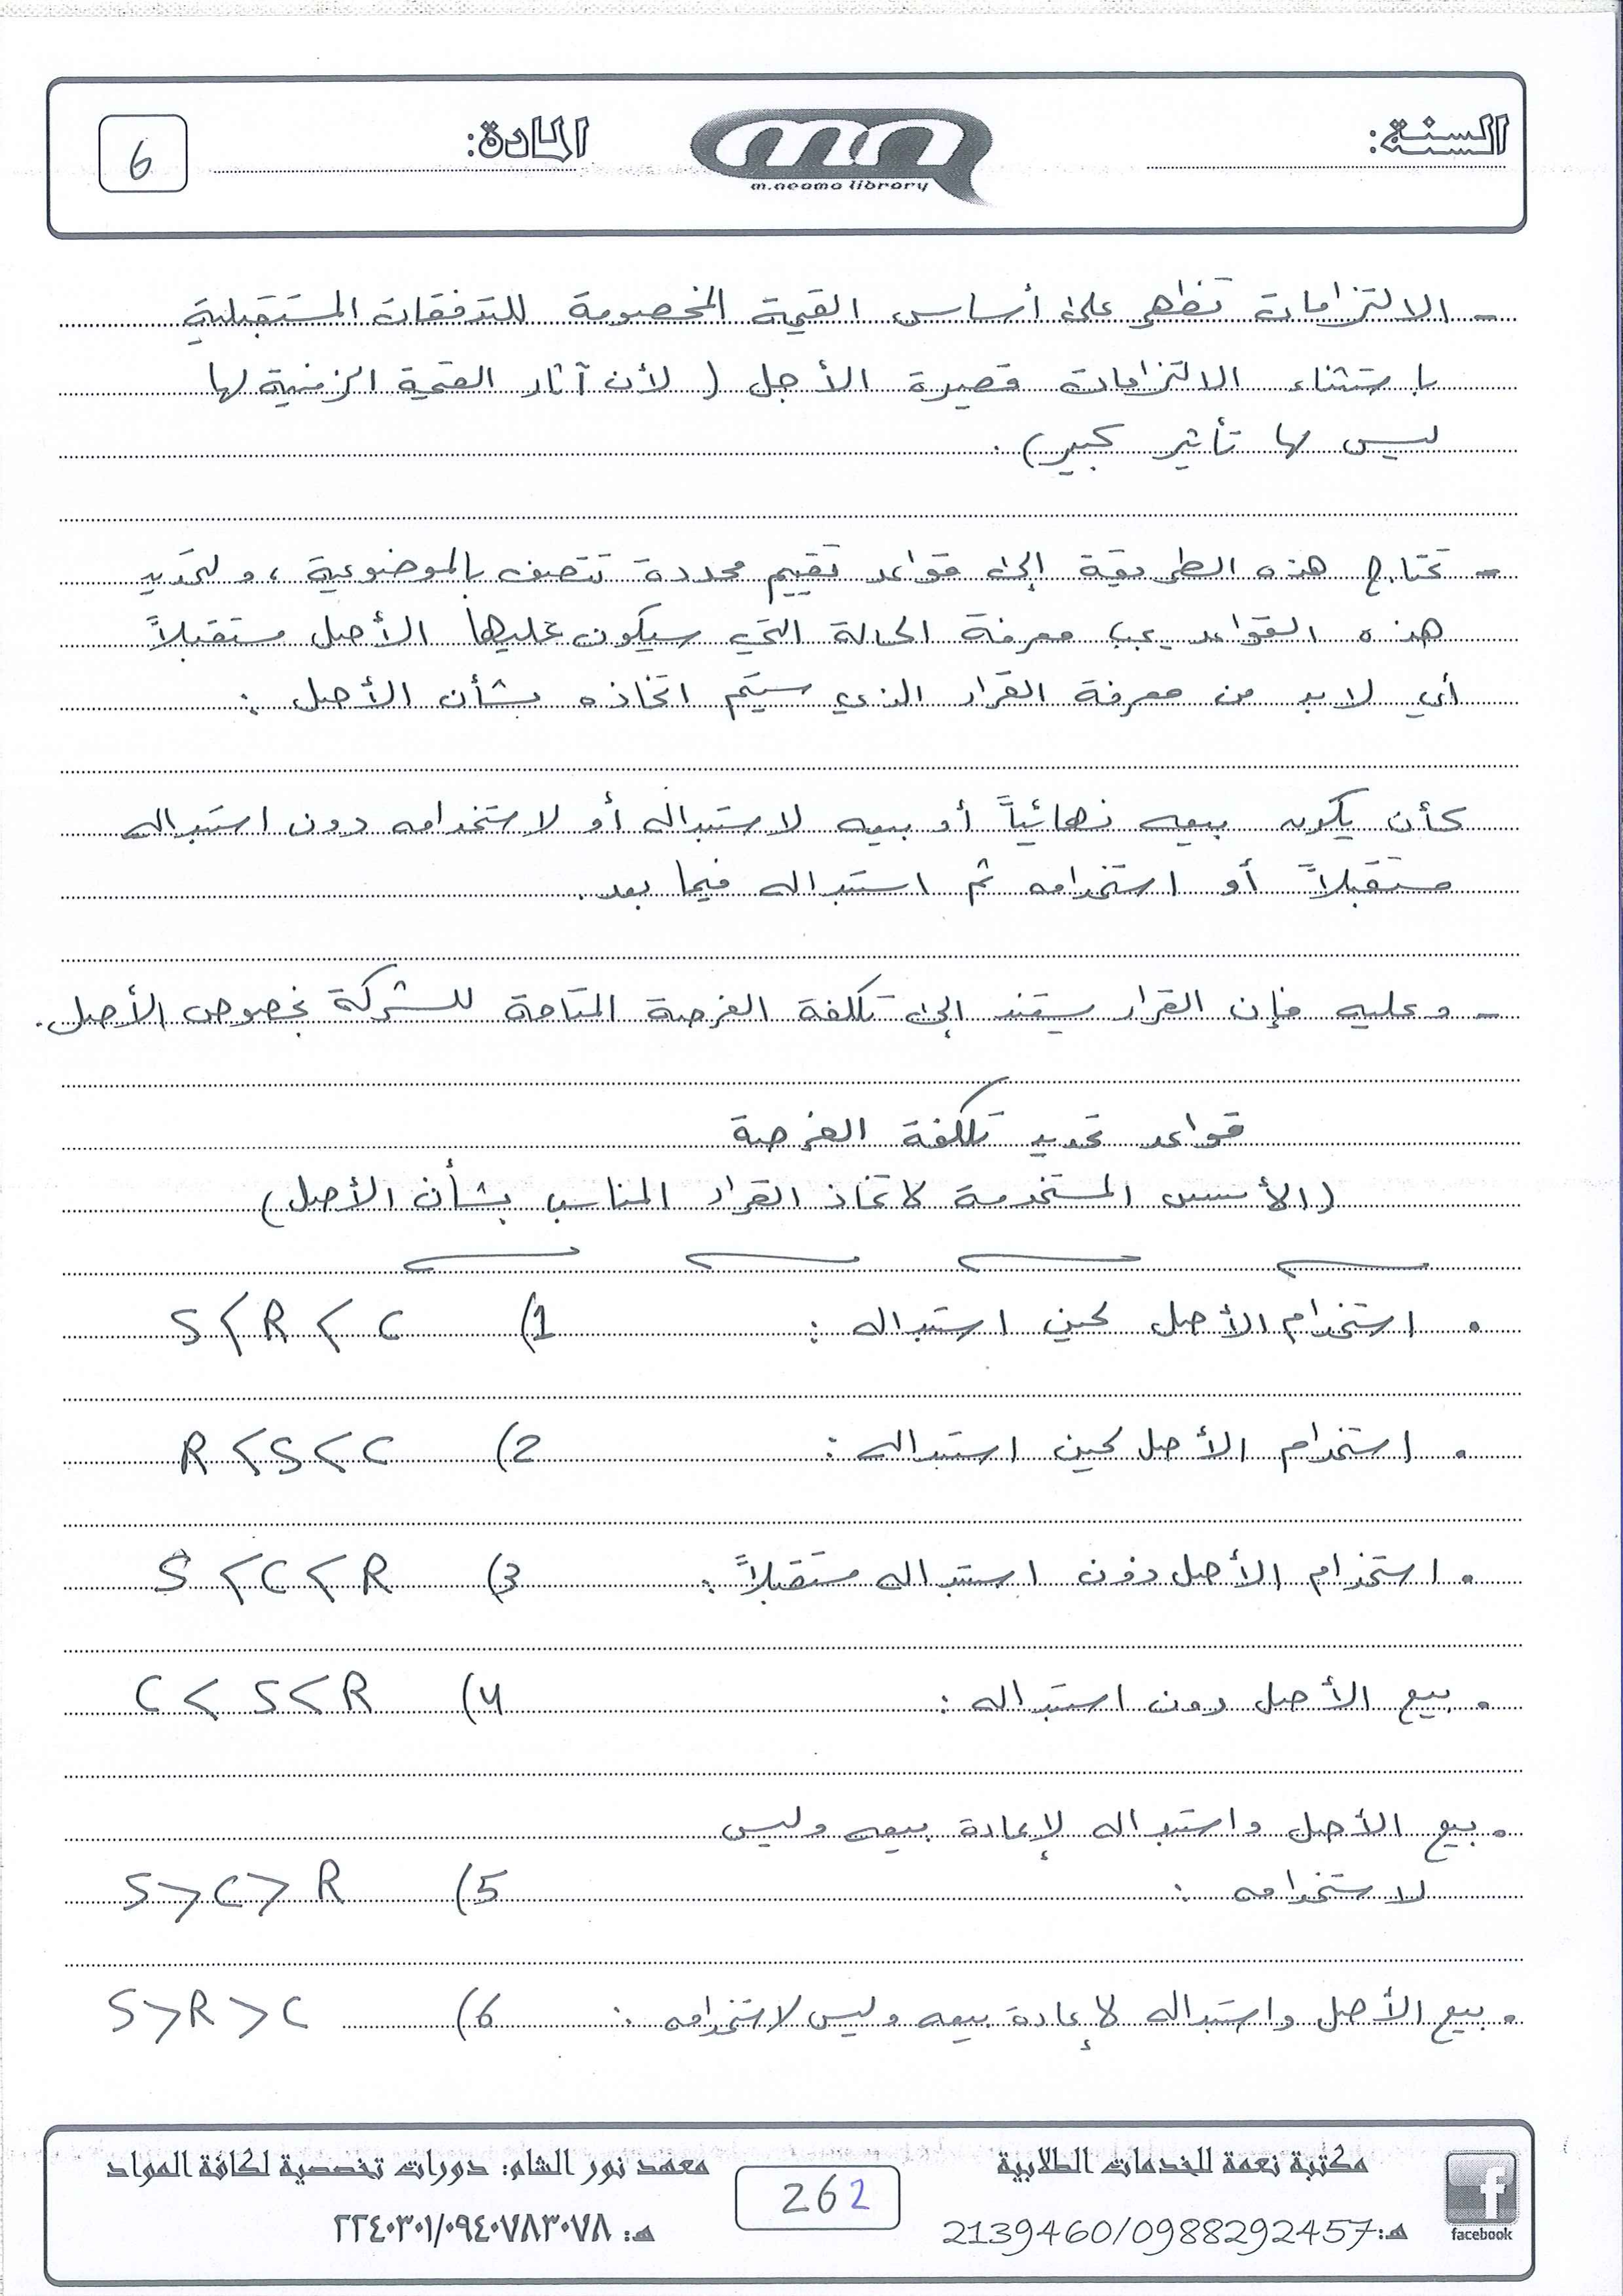 السنة:
m.neama library
المادة:
6
- الالتزامات تظهر على أساس القيمة المخصومة للتدفقات المستقبلية
باستثناء الالتزامات قصيرة الأجل ( لأن آثار القيمة الزمنية لها
ليس لها تأثير كبير ) .
- تحتاج هذه الطريقة إلى قواعد تقييم محددة تتصف بالموضوعية ، و لتحديد
هذه القواعد يجب معرفة الحالة التي سيكون عليها الأصل مستقبلاً
أي لا بد من معرفة القرار الذي سيتم اتخاذه بشأن الأصل :
كأن يكون بيعه نهائياً أو بيعه لاستبداله أو لاستخدامه دون استبداله
مستقبلاً أو استخدامه ثم استبداله فيما بعد .
- و عليه فإن القرار يستند إلى تكلفة الفرصة المتاحة للشركة بخصوص الأصل .
قواعد تحديد تكلفة الفرصة
( الأسس المستخدمة لاتخاذ القرار المناسب بشأن الأصل )
• استخدام الأصل لحين استبداله : 1) S < R < C
• استخدام الأصل لحين استبداله : 2) R < S < C
• استخدام الأصل دون استبداله مستقبلاً : 3) S < C < R
• بيع الأصل دون استبداله : 4) C < S < R
• بيع الأصل و استبداله لإعادة بيعه و ليس
لاستخدامه : 5) S > C > R
• بيع الأصل و استبداله لإعادة بيعه و ليس لاستخدامه : 6) S > R > C
facebook
مكتبة نعمة للخدمات الطلابية
هـ: 2139460/0988292457
262
معهد نور الشام: دورات تخصصية لكافة المواد
هـ: ٢٢٤٠٣٠١/٠٩٤٠٧٨٣٠٧٨